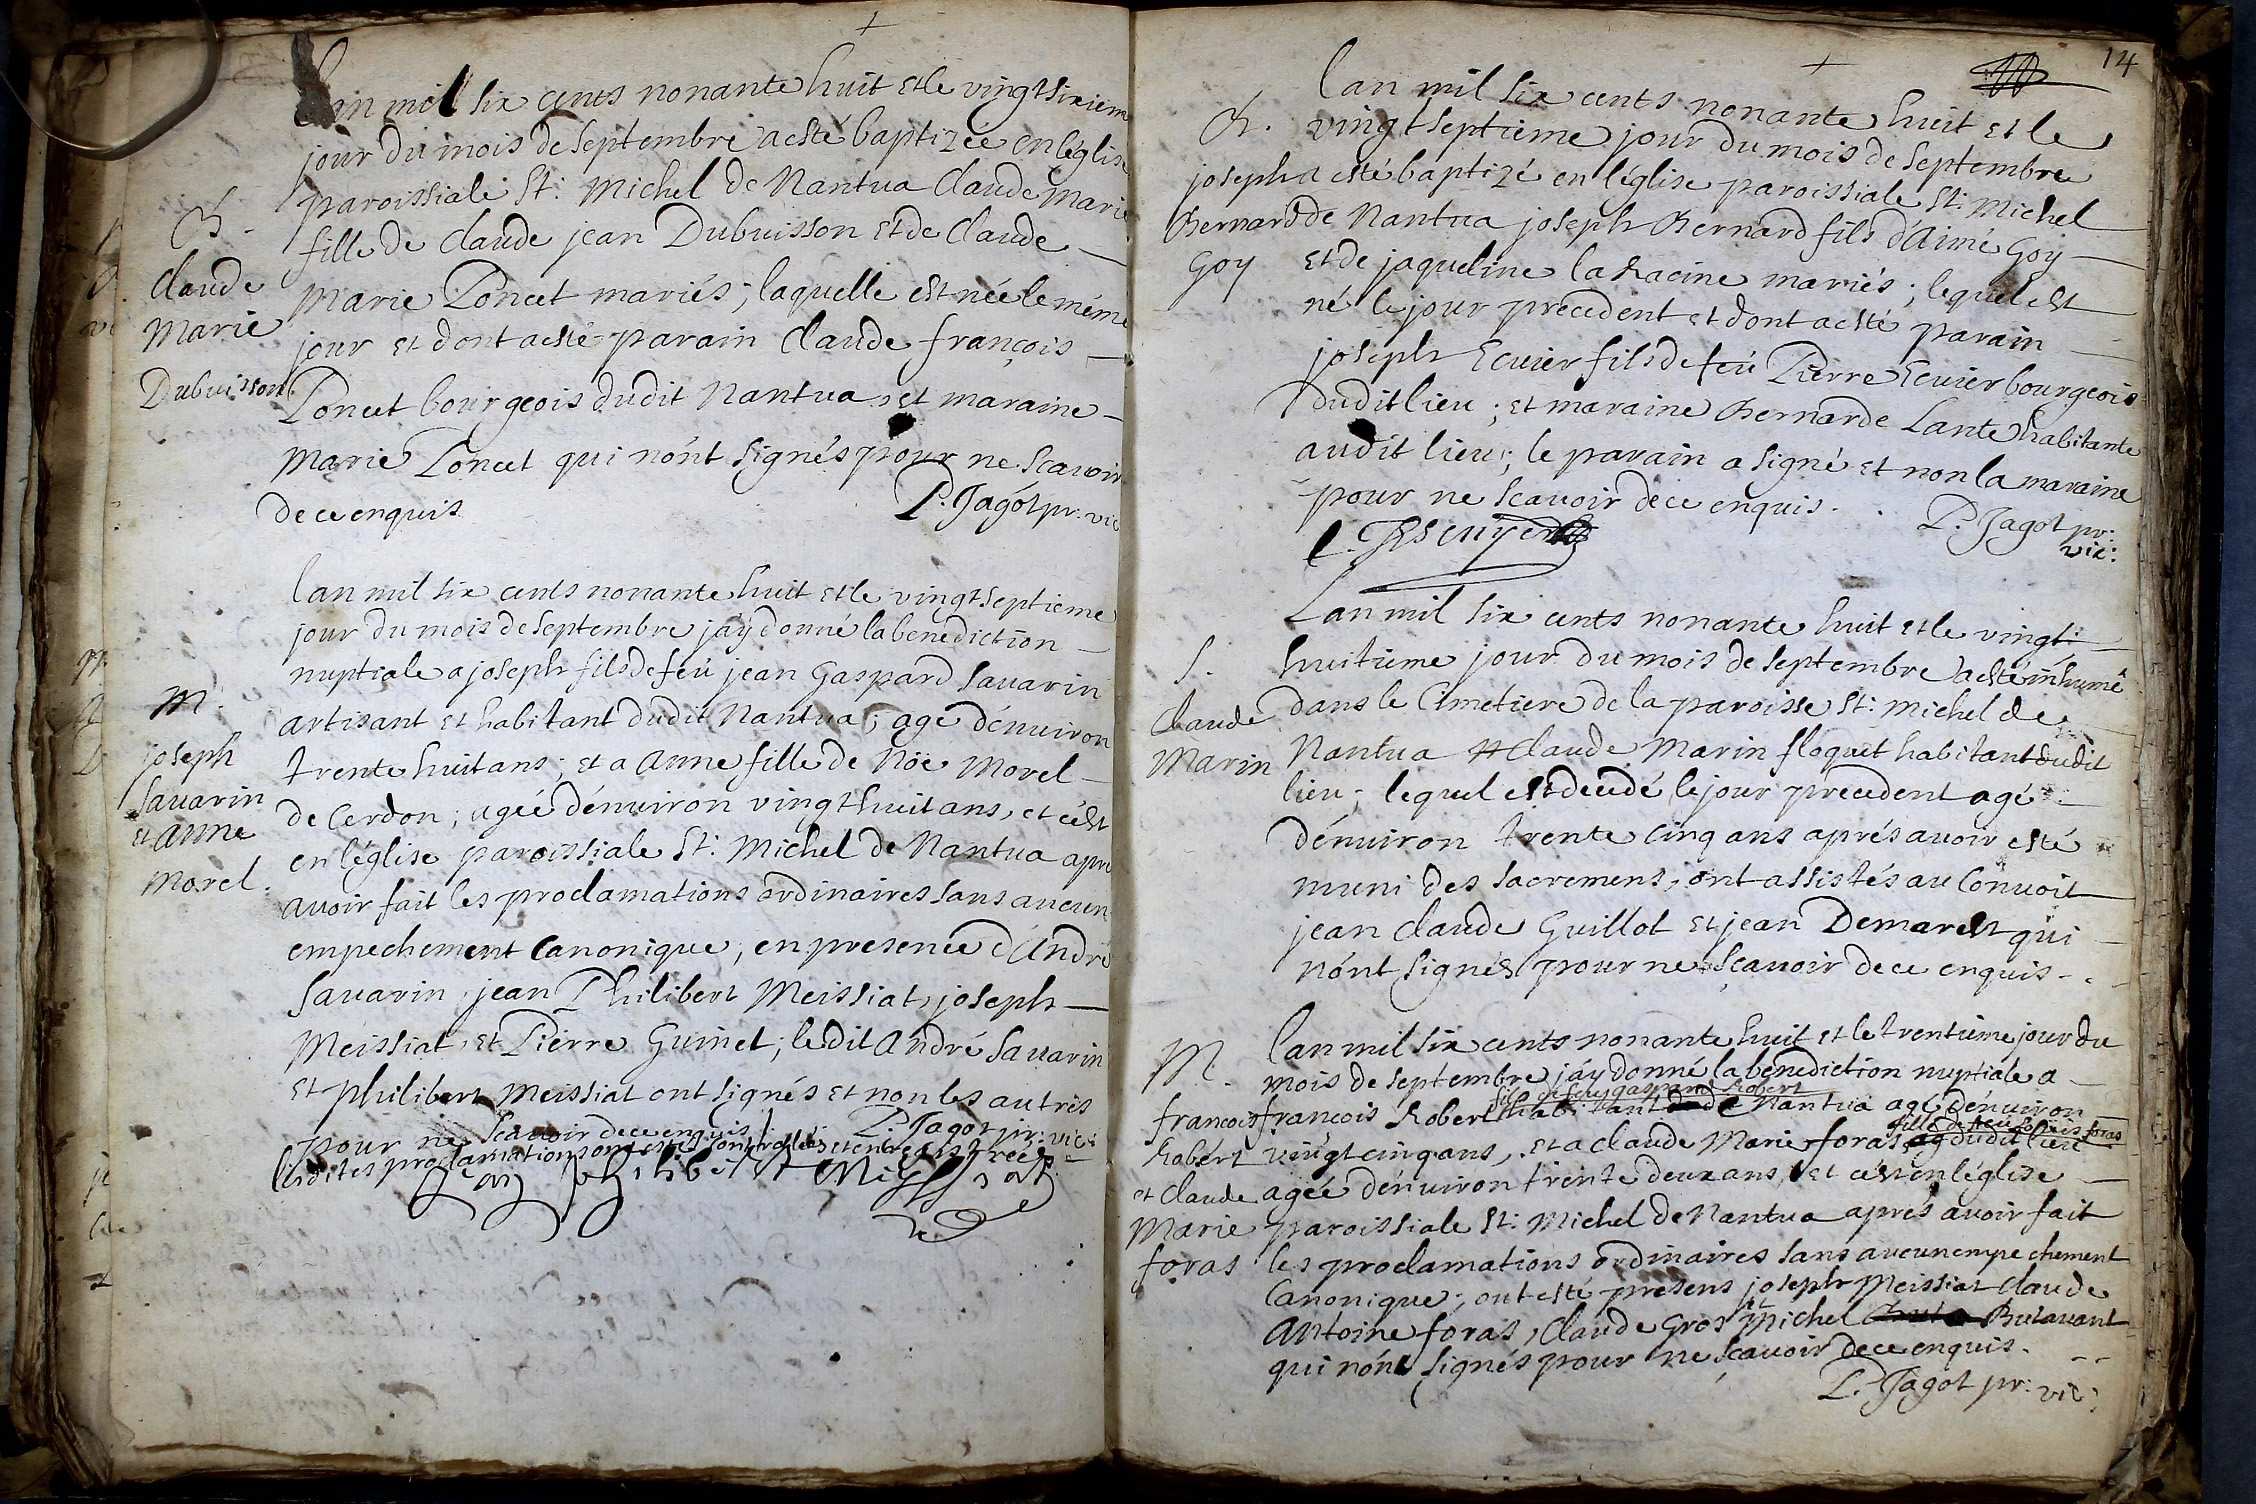 Lan mil six cents nonante huit et le vingt sixiem
jour du mois de septembre a esté baptizée en léglise
paroissiale St: Michel de Nantua Claude Marie
fille de Claude jean Dubuisson et de Claude
Marie Poncet mariés; laquelle est née le méme
jour et dont a esté parain Claude françois
Poncet bourgeois dudit Nantua, et maraine
Marie Poncet qui nónt signés pour ne scavoir
de ce enquis
P. Jagot pr: vic
B.
Claude
Marie
Dubuisson
Lan mil six cents nonante huit et le vingt septieme
jour du mois de septembre jáy donné la benediction
nuptiale a joseph fils de feu jean Gaspard Savarin
artisant et habitant dudit Nantua; agé dénviron
trente huit ans; et a Anne fille de Nöe Morel
de Cerdon; agée dénviron vingt huit ans, et cést
en léglise paroissiale St: Michel de Nantua apre
avoir fait les proclamations ordinaires sans aucun
empechement Canonique, en presence d'André
Savarin, jean Philibert Meissiat, joseph
Meissiat, et Pierre Guinet; ledit André Savarin
et philibert Meissiat ont signés et non les autres
pour ne scavoir de ce enquis
P. Jagot pr: vic:
lesdites proclamations ont estés controlleés et enregistrées
Jean philibert Meyssiat
M.
joseph
Savarin
et Anne
Morel.
14
Lan mil six cents nonante huit et le
vingt septieme jour du mois de septembre
a esté baptizé en léglise paroissiale St: Michel
de Nantua joseph Bernard fils d'Aimé Goy
et de jaqueline la Racine mariés; lequel est
né le jour precedent et dont a esté parain
joseph Ecuier fils de feu Pierre Ecuier bourgeois
dudit lieu; et maraine Bernarde Lante habitante
audit lieu; le parain a signé et non la maraine
pour ne scavoir de ce enquis.
P. Jagot pr:
vic:
B.
joseph
Bernard
Goy
Lan mil six cents nonante huit et le vingt
huitieme jour du mois de septembre a esté inhumé
dans le Cimetiere de la paroisse St: Michel de
Nantua Claude Marin floquet habitant dudit
lieu; lequel est decedé le jour precedent agé
dénviron trente cinq ans aprés avoir esté
muni des sacremens, ont assistés au Convoit
jean Claude Guillot et jean Demarest qui
nónt signés pour ne scavoir de ce enquis
S.
Claude
Marin
Lan mil six cents nonante huit et le trentieme jour du
mois de septembre jáy donné la benediction nuptiale a
fils de feu gaspard Robert
francois Robert habitant de Nantua agé dénviron
fille de feu Louis foras
vingt cinq ans, et a Claude Marie foras dudit lieu
agée dénviron trente deux ans, et cést en léglise
paroissiale St: Michel de Nantua aprés avoir fait
les proclamations ordinaires sans aucun empechement
Canonique; ont esté presens joseph Meissiat Claude
Antoine foras, Claude Gros et Michel Butavant
qui nónt signés pour ne scavoir de ce enquis.
P. Jagot pr: vic:
M.
francois
Robert
et Claude
Marie
foras